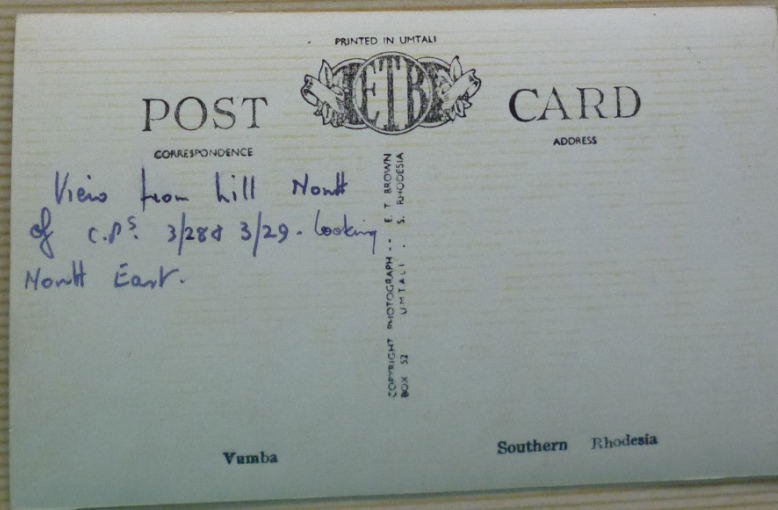 PRINTED IN UMTALI
ETB
POST CARD
CORRESPONDENCE
ADDRESS
View from hill North
of C.Ps. 3/28 & 3/29 - looking
North East.
COPYRIGHT PHOTOGRAPH -- E. T. BROWN
BOX 52 UMTALI . S. RHODESIA
Vumba
Southern Rhodesia